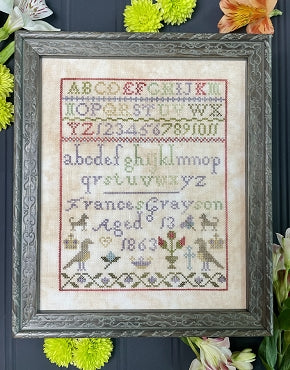 ABCDEFGHIJKLM
NOPQRSTUVWX
YZ1234567891011
abcdefghijklmnop
qrstuvwxyz
Frances Grayson
Aged 13
1863